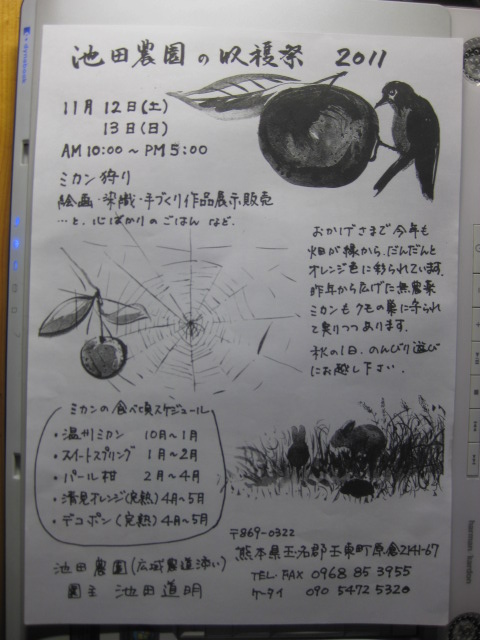 池田農園の収穫祭 2011
11月12日(土)
13日(日)
AM10:00~PM5:00
ミカン狩り
絵画・染織・手づくり作品展示販売
…と、心ばかりのごはん など。
おかげさまで今年も
畑が緑から、だんだんと
オレンジ色に彩られています。
昨年から広げた無農薬
ミカンもクモの巣に守られ
て実りつつあります。
秋の1日、のんびり遊び
にお越し下さい。
ミカンの食べ頃スケジュール
・温州ミカン 10月~1月
・スイートスプリング 1月~2月
・パール柑 2月~4月
・清見オレンジ(完熟)4月~5月
・デコポン(完熟)4月~5月
池田農園(広域農道沿い)
園主 池田道明
〒869-0322
熊本県玉名郡玉東町原倉2141-67
TEL・FAX 0968 85 3955
ケータイ 090 5472 5320
harman/kardon